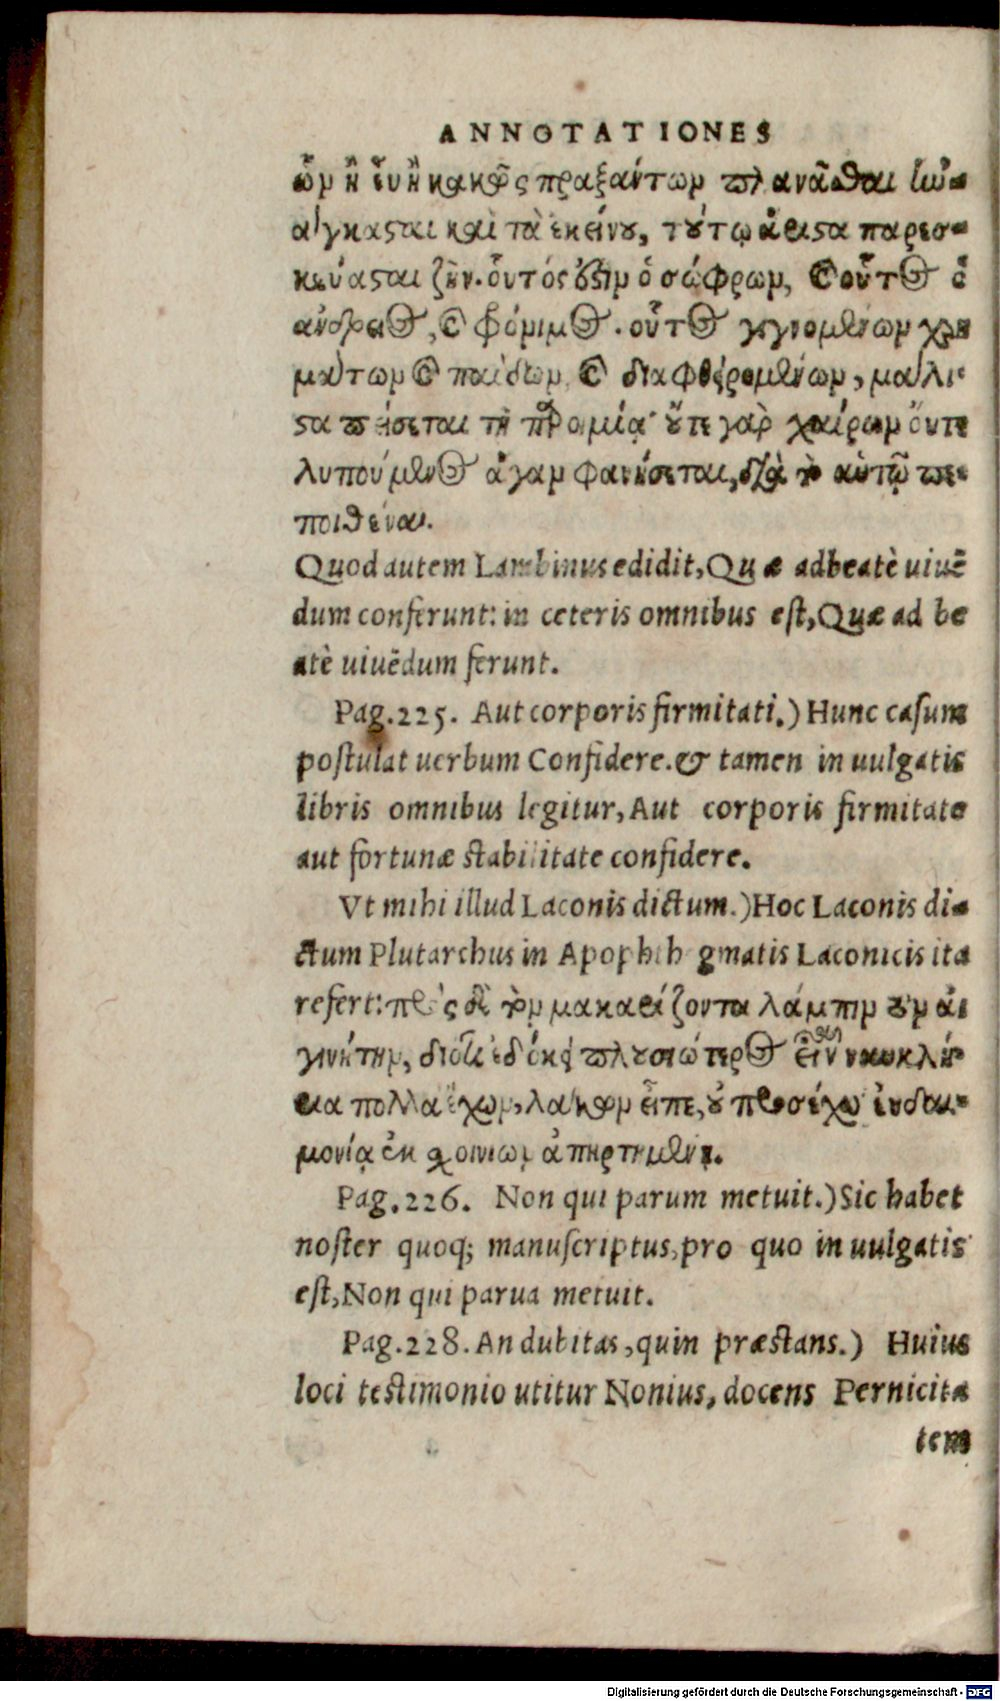 ANNOTATIONES
ὧν ἢ εὖ ἢ κακῶς πραξάντων πλανᾶσθαι ἠνά-
γκασται καὶ τὰ ἐκείνου, τούτῳ ἄριστα παρεσ-
κεύασται ζῆν. οὗτός ἐστιν ὁ σώφρων, καὶ οὗτος ὁ
ἀνδρεῖος, καὶ φρόνιμος. οὗτος γιγνομένων χρη
μάτων καὶ παίδων καὶ διαφθειρομένων, μάλι-
στα πείσεται τῇ παροιμίᾳ· οὔτε γὰρ χαίρων οὔτε
λυπούμενος ἄγαν φανήσεται, διὰ τὸ αὑτῷ πε-
ποιθέναι.
Quod autem Lambinus edidit, Quæ ad beatè uiuē
dum conferunt: in ceteris omnibus est, Quæ ad be
atè uiuēdum ferunt.
Pag.225. Aut corporis firmitati.) Hunc casum
postulat uerbum Confidere. & tamen in uulgatis
libris omnibus legitur, Aut corporis firmitate
aut fortunæ stabilitate confidere.
Vt mihi illud Laconis dictum.) Hoc Laconis di-
ctum Plutarchus in Apophthegmatis Laconicis ita
refert: πρὸς δὲ τὸν μακαρίζοντα λάμπιν τὸν αἰ
γινήτην, διότι ἐδόκει πλουσιώτερος εἶναι ναυκλή-
ρια πολλὰ ἔχων, λάκων εἶπε, οὐ προσέχω εὐδαι-
μονίᾳ ἐκ σχοινίων ἀπηρτημένῃ.
Pag.226. Non qui parum metuit.) Sic habet
noster quoq; manuscriptus, pro quo in uulgatis
est, Non qui parua metuit.
Pag.228. An dubitas, quin præstans.) Huius
loci testimonio utitur Nonius, docens Pernicita
tem
Digitalisierung gefördert durch die Deutsche Forschungsgemeinschaft - DFG